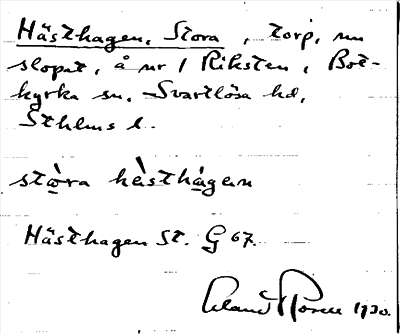 Hästhagen, Stora, torp, nu
slopat, å nr 1 Riksten, Bot-
kyrka sn. Svartlösa hd,
Sthlms l.
stòra hèsthàgen
Hästhagen St. G 67.
1930.